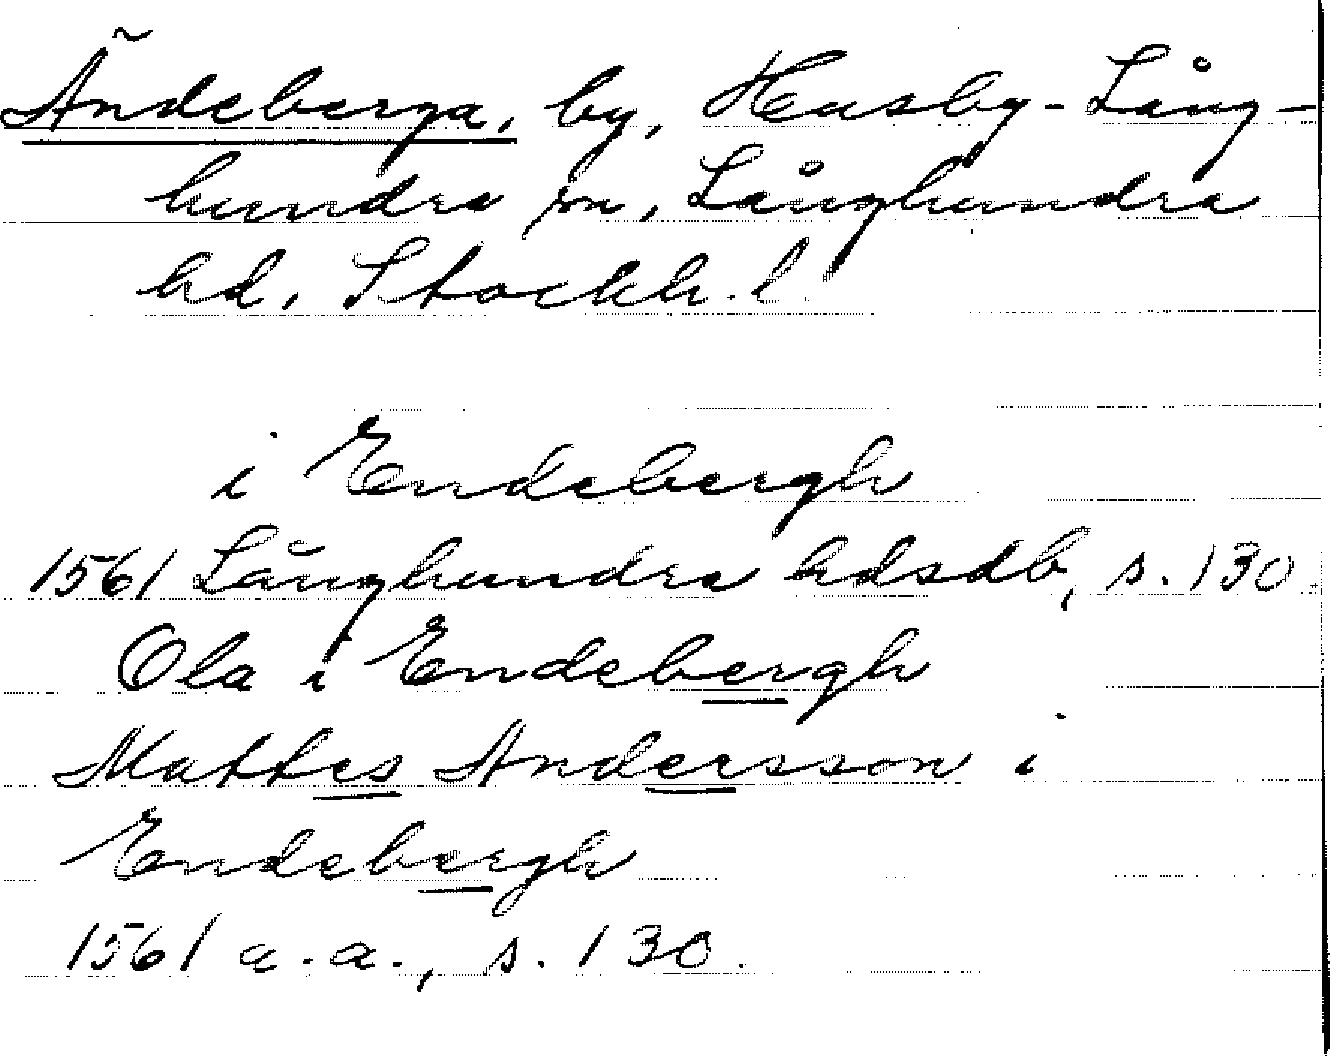 Ändeberga, by, Husby-Lång-
hundra sn, Långhundra
hd, Stockh. l.
i Endebergh
1561 Långhundra hdsdb, s. 130.
Ola i Endebergh
Mattes Andersson i
Endebergh
1561 a.a., s. 130.